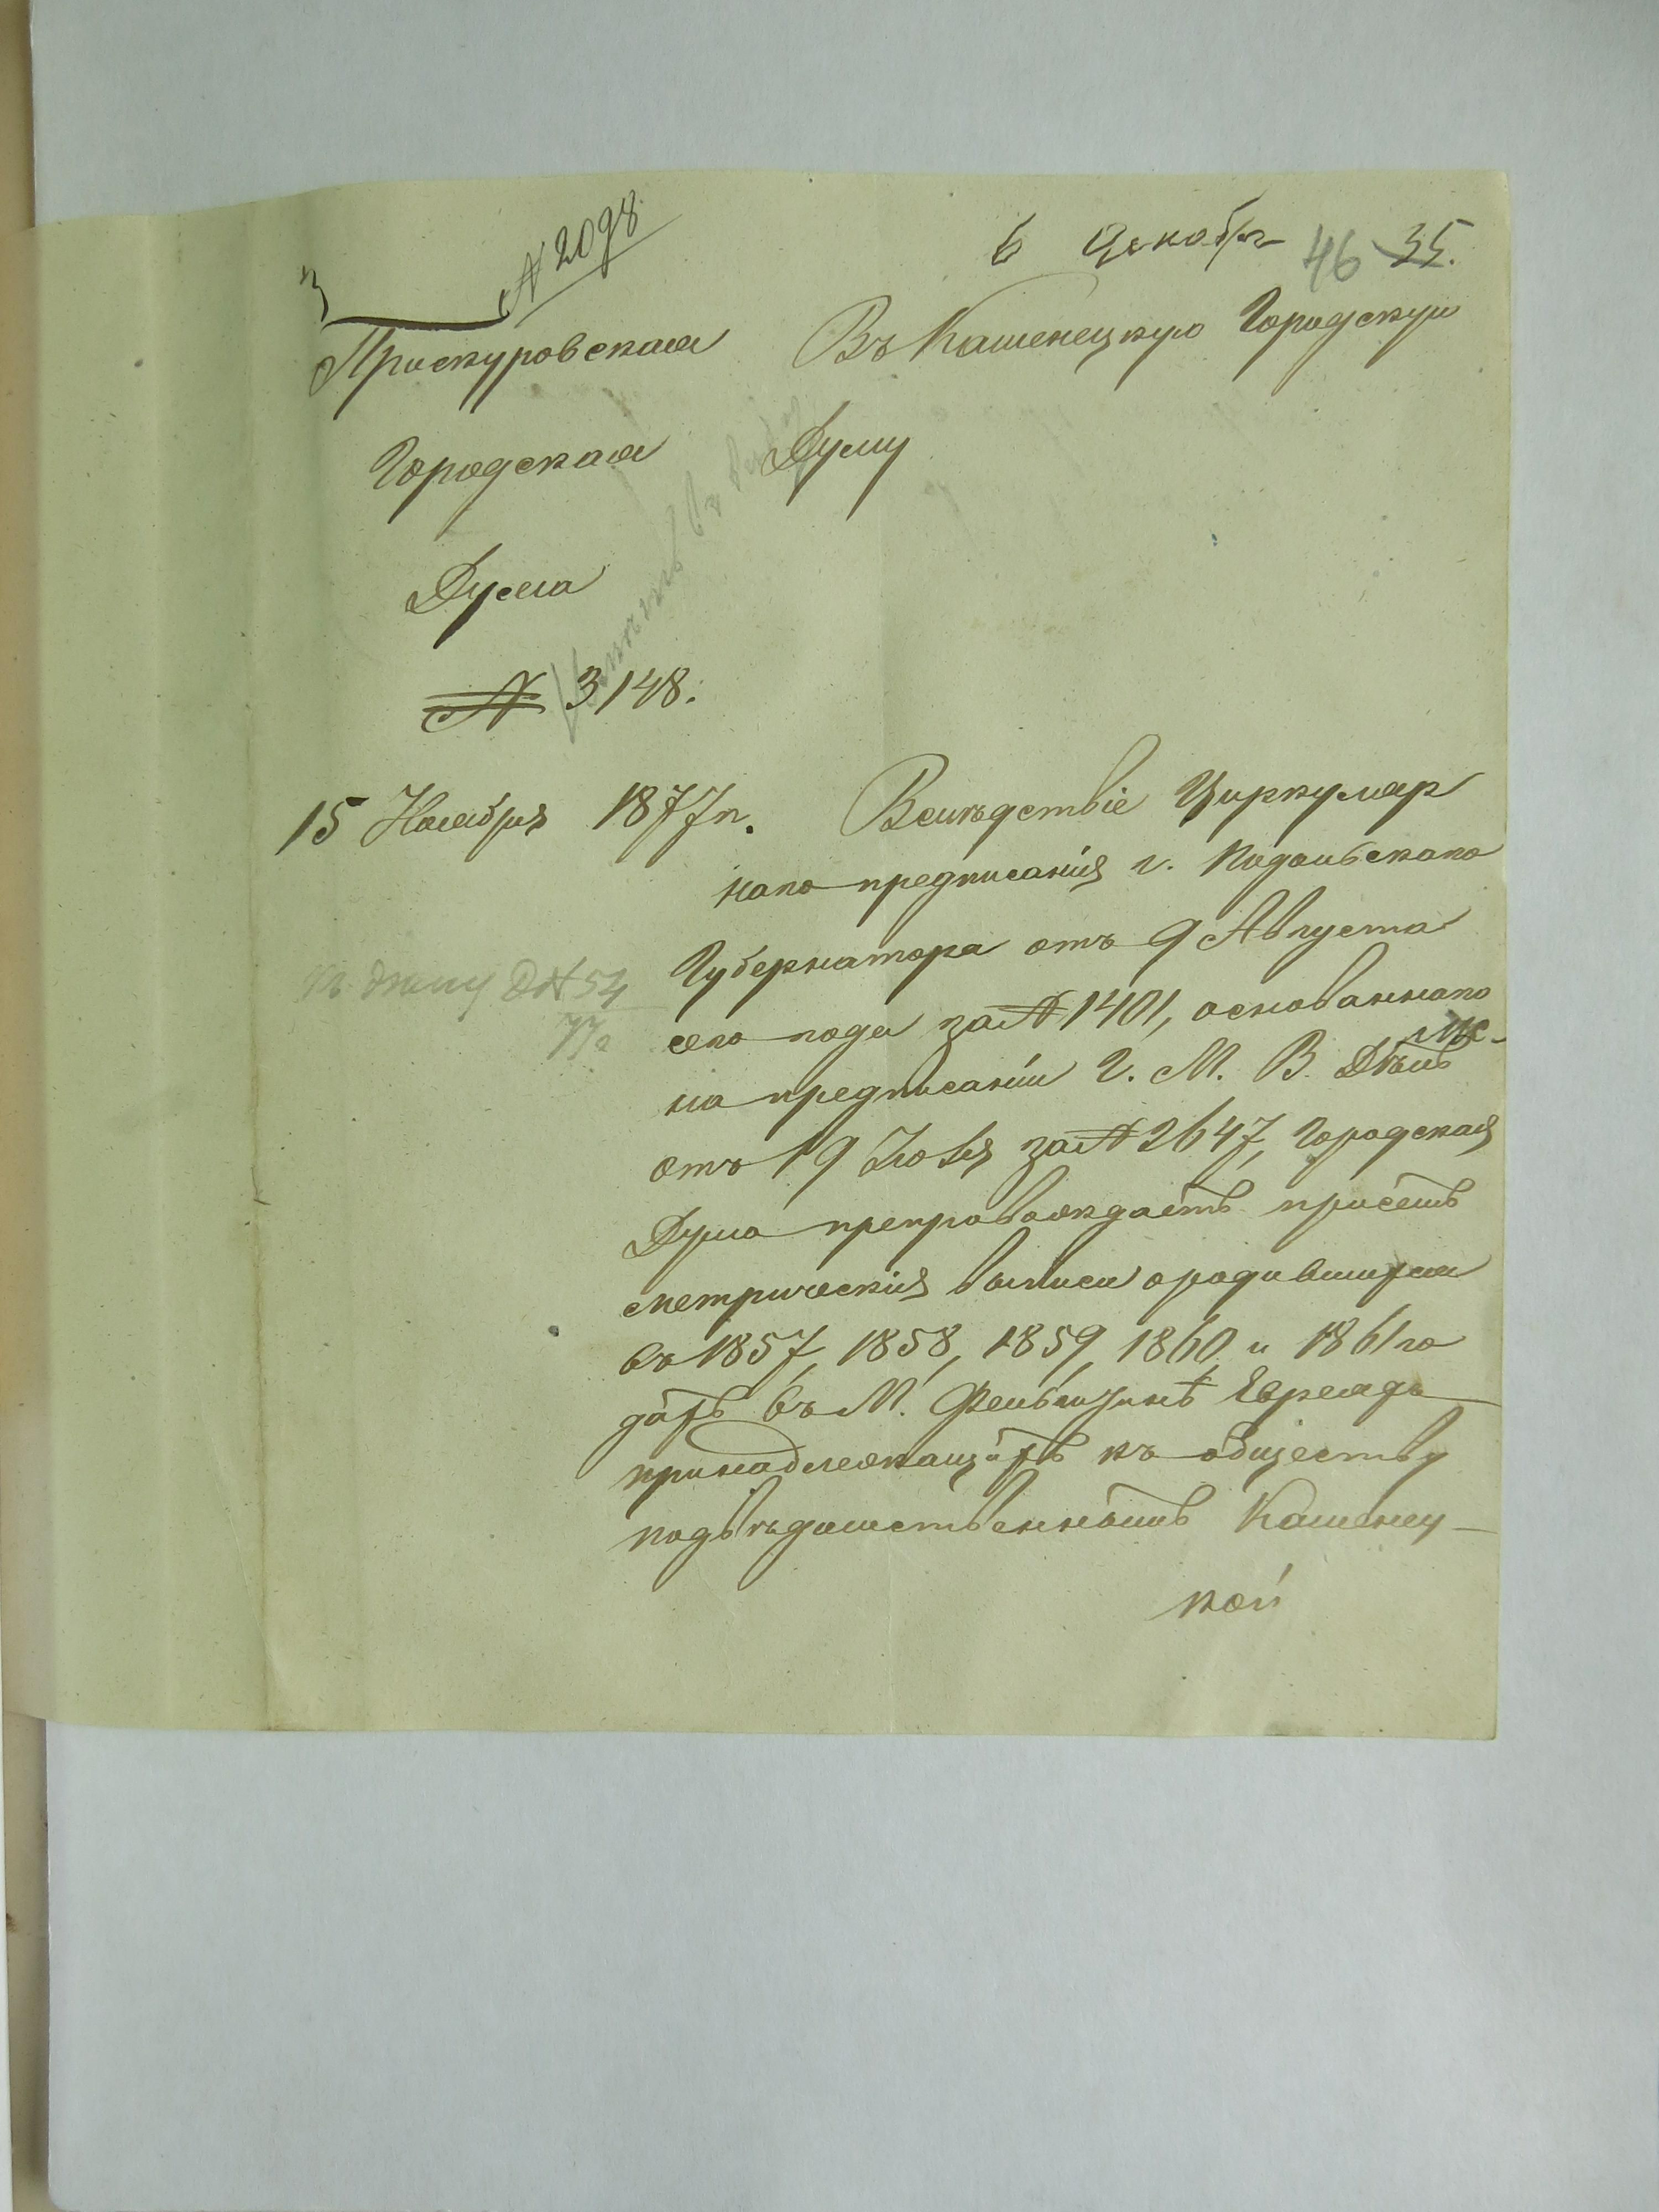 № 2098
6 Декабря 46 35.
Прискуровская
Городская
Дума
№ 3148.
15 Ноября 1877 г.
Въ Каменецкую Городскую
Думу
Вслѣдствіе Циркуляр
наго предписанія г. Подольскаго
Губернатора отъ 9 Августа
сего года за № 1401, основаннаго
на предписаніи Г. М. В. Дѣлъ
отъ 19 Іюля за № 2647, Городская
Дума препровождаетъ при семъ
метрическія выписи о родившихся
въ 1857, 1858, 1859, 1860 и 1861 го
дахъ въ М. Фельштинѣ Евреяхъ
принадлежащихъ къ обществу
подвѣдомственнымъ Каменец-
кой
къ дѣлу № 54
77 г